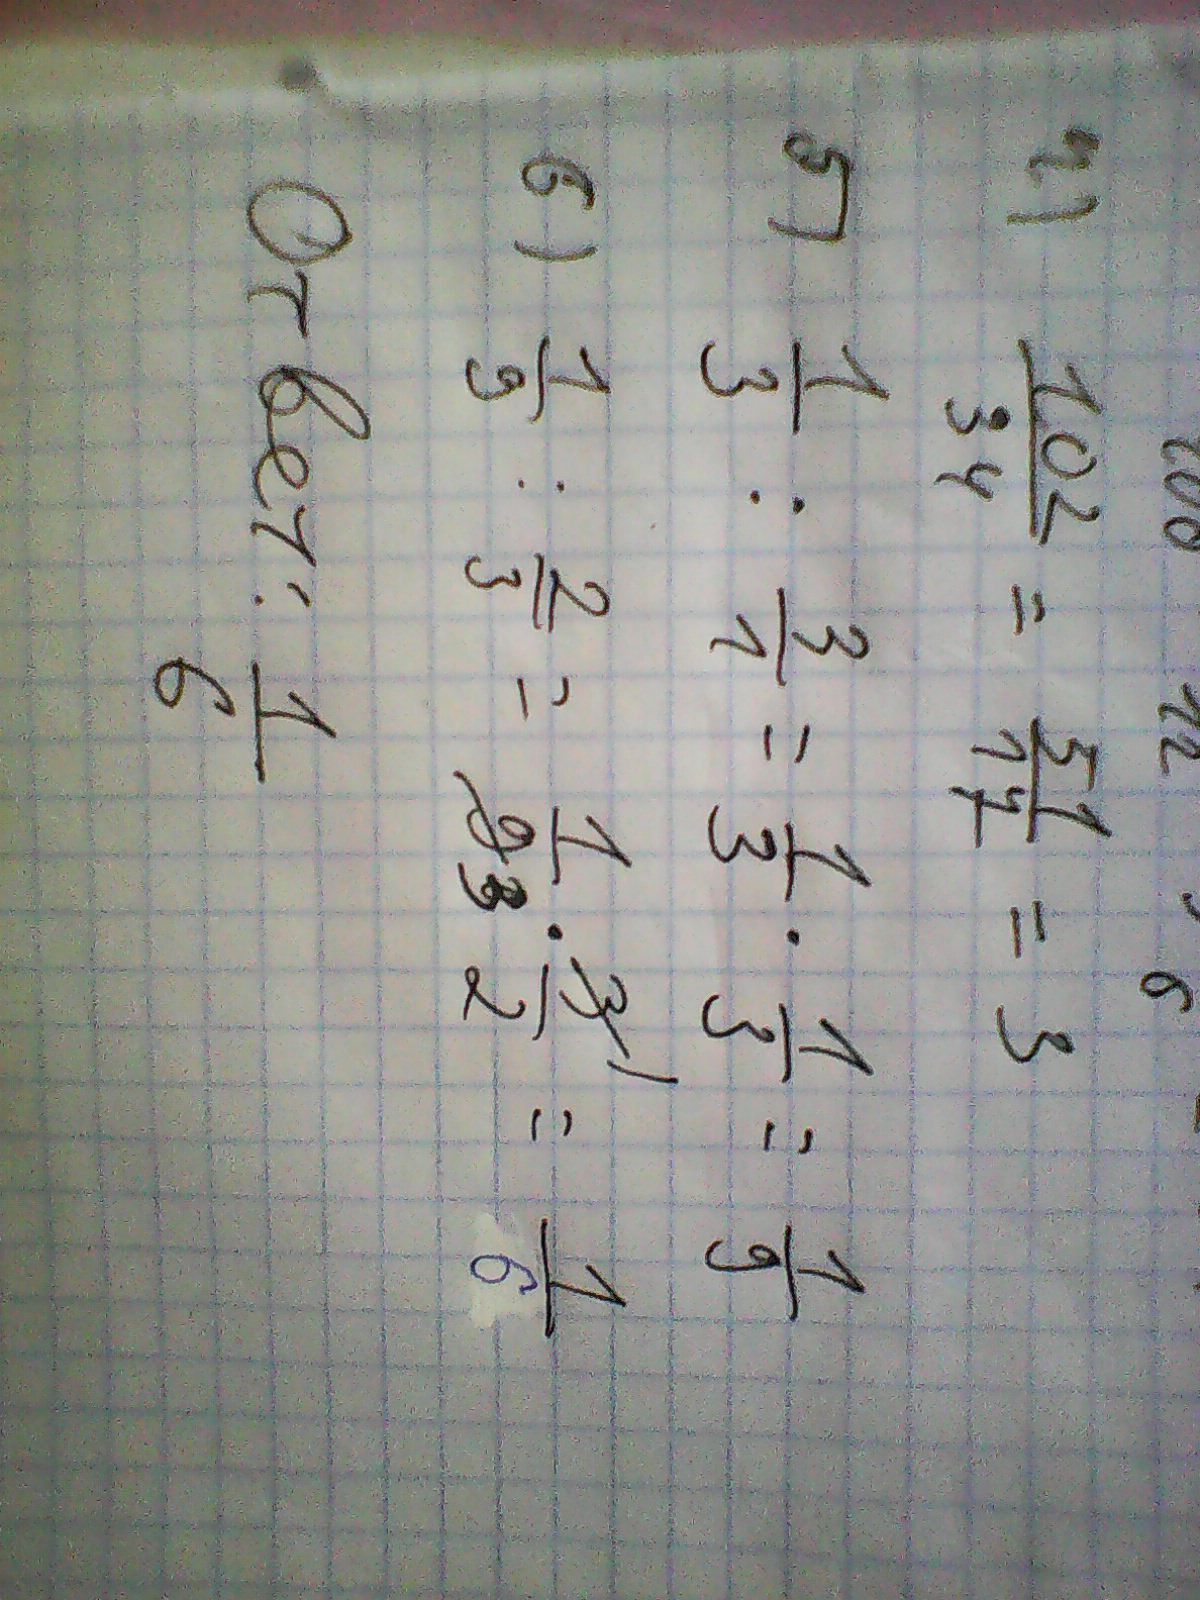 4) 102/34 = 51/17 = 3
5) 1/3 : 3/1 = 1/3 · 1/3 = 1/9
6) 1/9 : 2/3 = 1/9 3 · 3/2 1 = 1/6
Ответ: 1/6